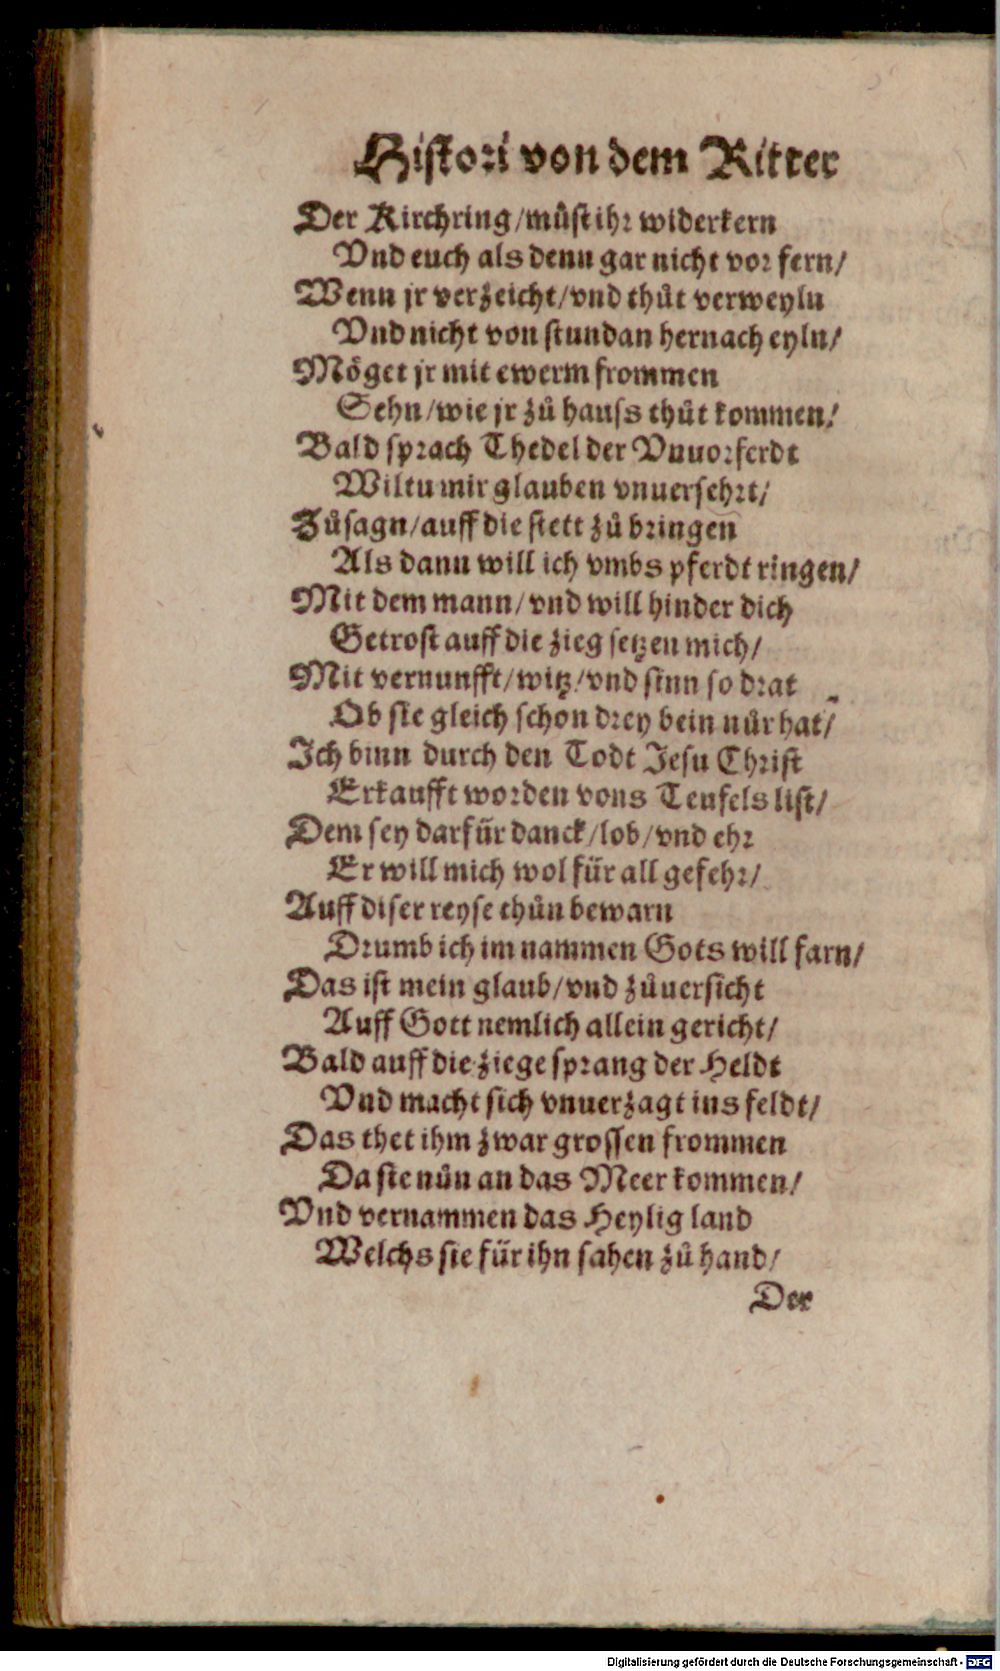 Histori von dem Ritter
Der Kirchring/müst ihr widerkern
Vnd euch als denn gar nicht vor fern/
Wenn jr verzeicht/vnd thůt verweyln
Vnd nicht von stundan hernach eyln/
Möget jr mit ewerm frommen
Sehn/wie jr zů hauss thůt kommen/
Bald sprach Thedel der Vnuorferdt
Wiltu mir glauben vnuersehrt/
Zůsagn/auff die stett zů bringen
Als dann will ich vmbs pferdt ringen/
Mit dem mann/vnd will hinder dich
Getrost auff die zieg setzen mich/
Mit vernunfft/witz/vnd sinn so drat
Ob sie gleich schon drey bein nůr hat/
Ich binn durch den Todt Jesu Christ
Erkaufft worden vons Teufels list/
Dem sey darfür danck/lob/vnd ehr
Er will mich wol für all gefehr/
Auff diser reyse thůn bewarn
Drumb ich im nammen Gots will farn/
Das ist mein glaub/vnd zůuersicht
Auff Gott nemlich allein gericht/
Bald auff die ziege sprang der Heldt
Vnd macht sich vnuerzagt ins feldt/
Das thet ihm zwar grossen frommen
Da sie nůn an das Meer kommen/
Vnd vernammen das Heylig land
Welchs sie für ihn sahen zů hand/
Der
Digitalisierung gefördert durch die Deutsche Forschungsgemeinschaft - DFG